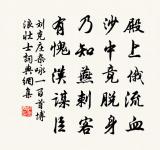 殿上俄流血
沙中竟脫身
乃知燕刺客
有愧漢謀臣
刘克庄雜咏一百首博
浪壯士詞典網集